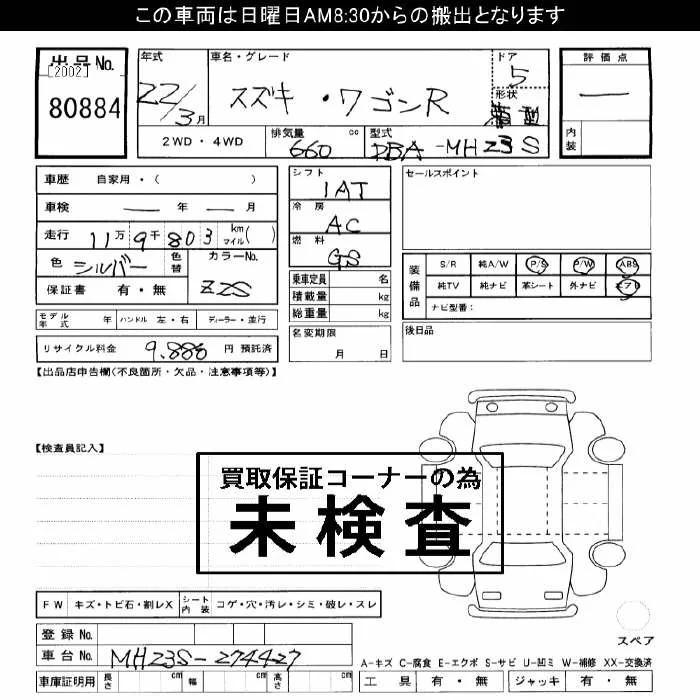 この車両は日曜日AM8:30からの搬出となります
出品No.
[2002]
80884
年式
22/3月
車名・グレード
スズキ・ワゴンR
ドア
5
形状
箱型
評価点
—
内装
2WD・4WD
排気量 cc
660
型式
DBA-MH23S
車歴 自家用・( )
車検 — 年 — 月
走行 11万9千803 km マイル( )
色 シルバー 色替
カラーNo.
Z2S
保証書 有・無
シフト
1AT
冷房
AC
燃料
GS
乗車定員 名
積載量 kg
総重量 kg
名変期限
月 日
セールスポイント
装備品
S/R 純A/W P/S P/W ABS
純TV 純ナビ 革シート 外ナビ エアB
ナビ型番:
後日品
モデル年式 年 ハンドル 左・右 ディーラー・並行
リサイクル料金 9,880 円 預託済
【出品店申告欄(不良箇所・欠品・注意事項等)】
【検査員記入】
買取保証コーナーの為
未検査
FW キズ・トビ石・割レX シート内装 コゲ・穴・汚レ・シミ・破レ・スレ
登録No.
車台No. MH23S-274427
車庫証明用 長さ cm 幅 cm 高さ cm
スペア
A-キズ C-腐食 E-エクボ S-サビ U-凹ミ W-補修 XX-交換済
工具 有・無 ジャッキ 有・無